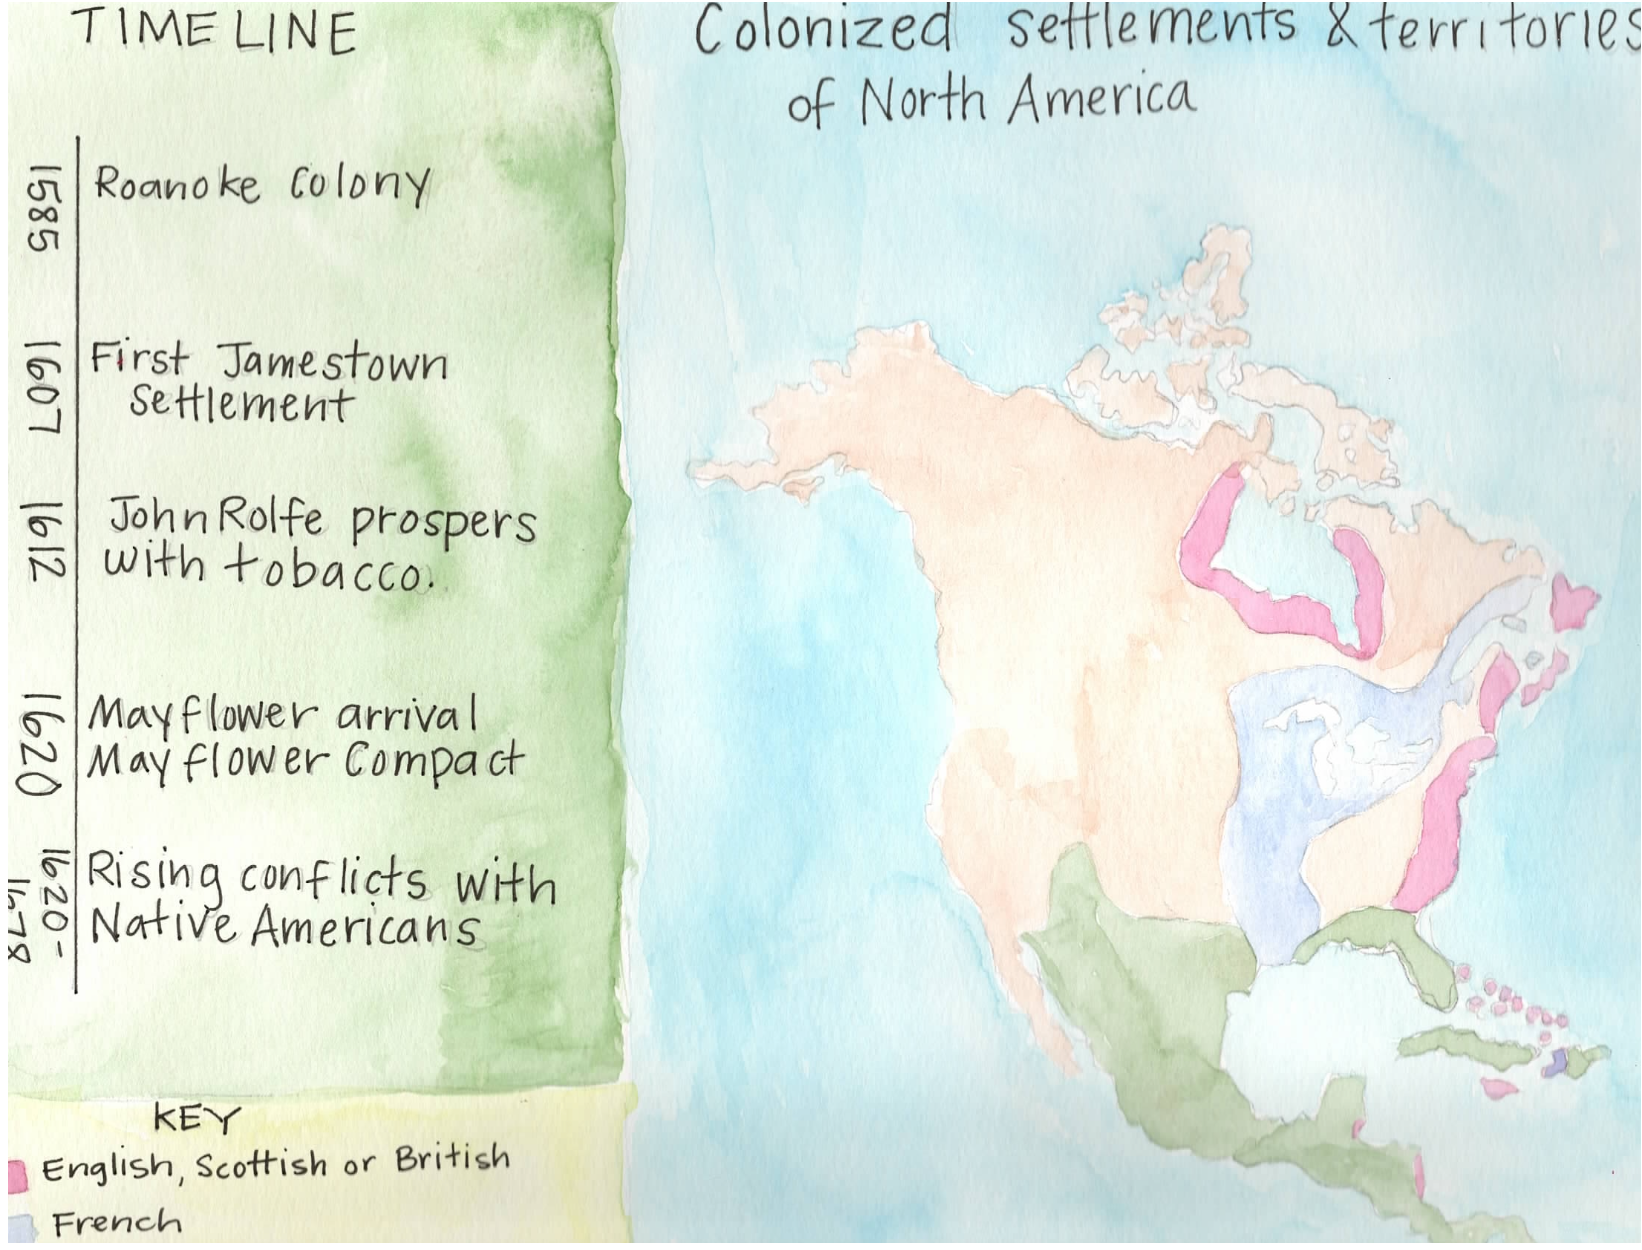 TIMELINE
Colonized settlements & territories
of North America
1585
Roanoke Colony
1607
First Jamestown
Settlement
1612
John Rolfe prospers
with tobacco.
1620
Mayflower arrival
Mayflower Compact
1620-
1678
Rising conflicts with
Native Americans
KEY
English, Scottish or British
French